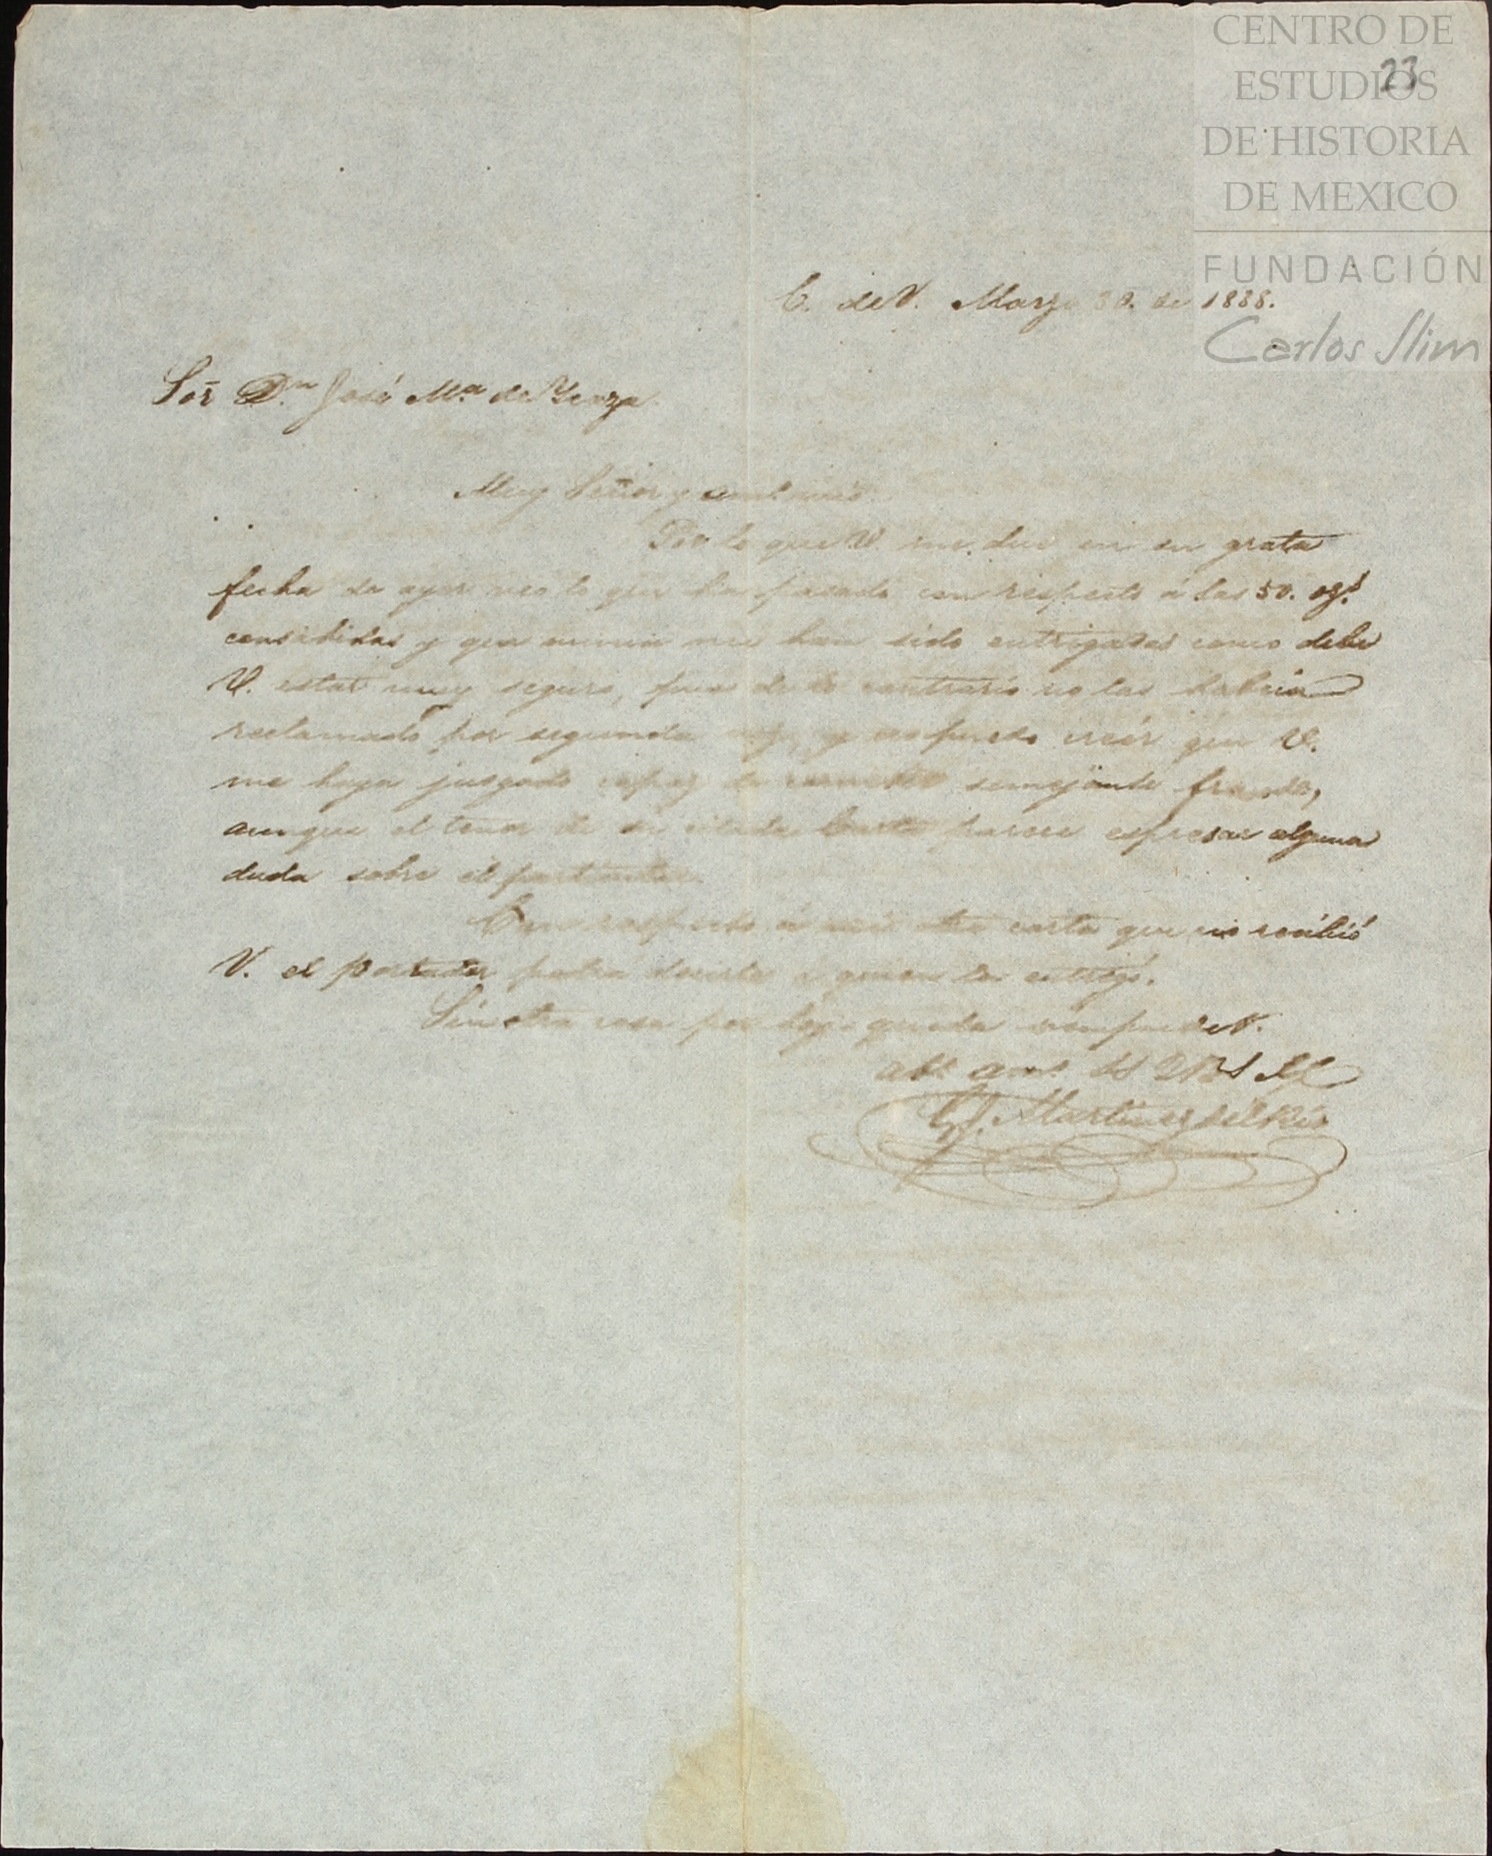 CENTRO DE
ESTUDIOS
DE HISTORIA
DE MEXICO
FUNDACIÓN
Carlos Slim
23
C. de V. Marzo 30. de 1838.
Sor̄ Dn. José Ma. de Ycaza
Muy Señor y amo. mio
Por lo que V. me dice en su grata
fecha de ayer veo lo que ha pasado con respecto á las 50. ogs.
consabidas y que nunca me han sido entregadas como debe
V. estar muy seguro, pues de lo contrario no las habria
reclamado por segunda vez, y no puedo creér que V.
me haya juzgado capaz de cometer semejante fraude,
aunque el tenor de su citada Carta parece espresar alguna
duda sobre el particular.
Con respecto á mi otra carta que no recibió
V. el portador podra decirle á quien la entregó.
Sin otra cosa por hoy queda siempre de V.
G. Martinez del Rio